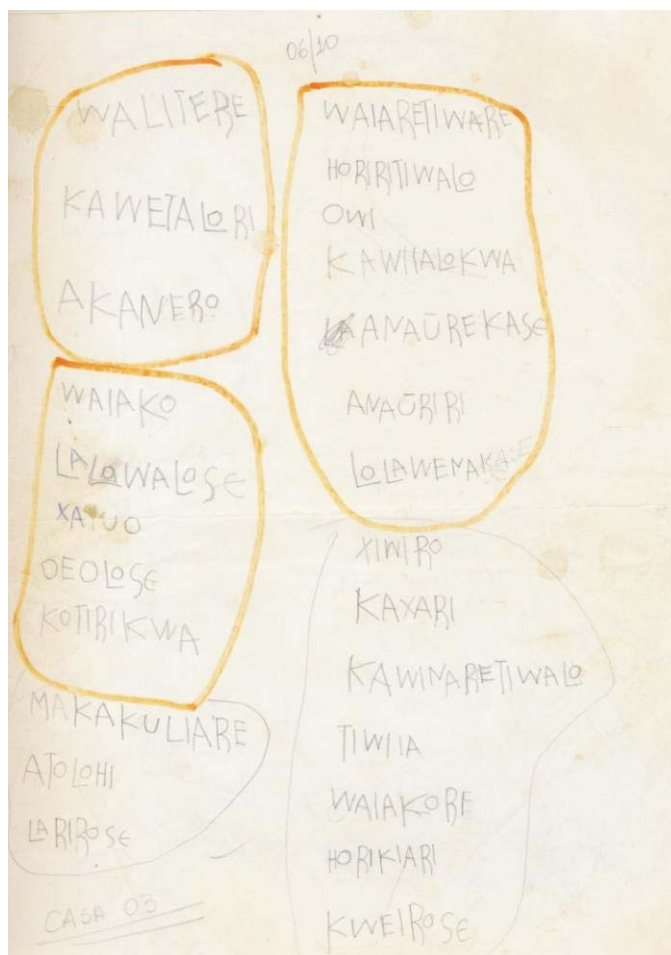 06/10
WALITERE
KAWETALORI
AKANERO
WAIAKO
LALOWALOSE
OEOLOSE
KOTIRIKWA
MAKAKULIARE
ATOLOHI
LARIROSE
CASA 03
WAIARETIWARE
HORIRITIWALO
OWI
KAWIIALOKWA
ANAŪREKASE
ANAŪRIRI
LOLAWENAKASE
XIWIRO
KAXARI
KAWINARETIWALO
TIWIIA
WAIAKORE
HORIKIARI
KWEIROSE